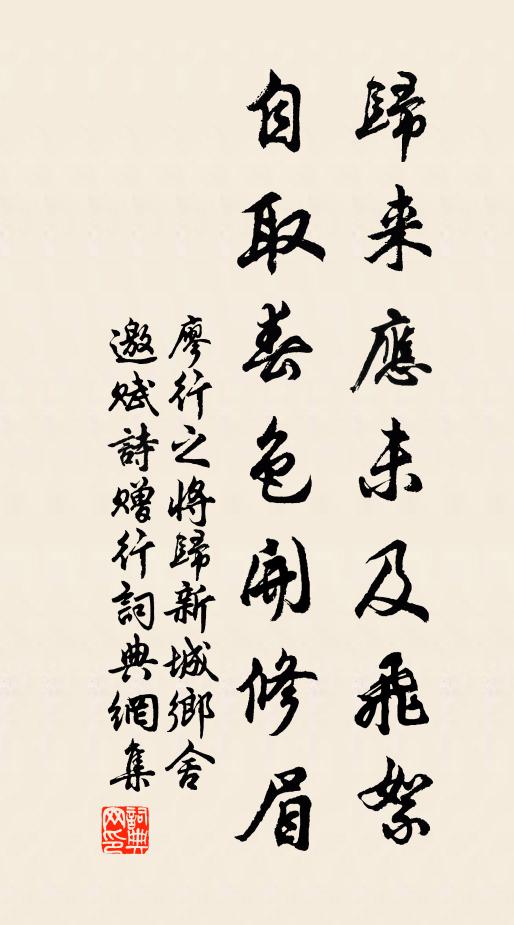 歸来應未及飛絮
自取春色開修眉
廖行之將歸新城鄉舍
邀賦詩贈行詞典網集
詞典
网印